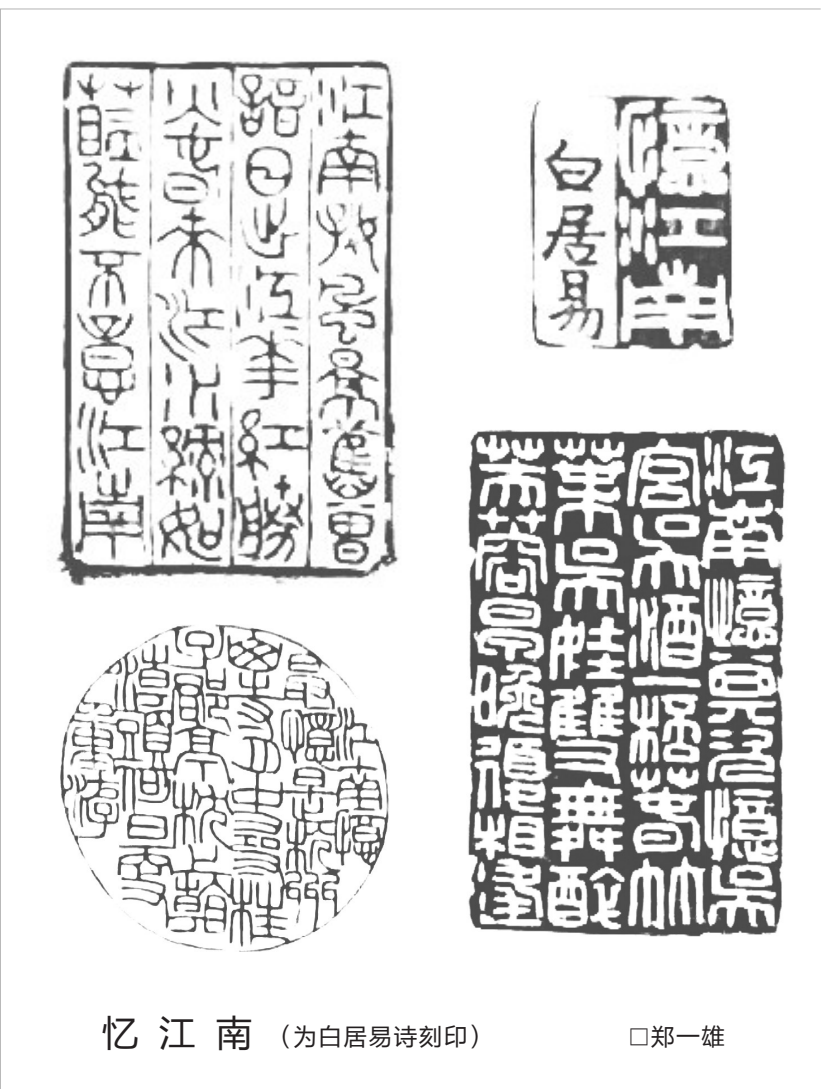 江南好風景舊曾
諳日出江花紅勝
火春來江水綠如
藍能不憶江南
憶江南
白居易
江南憶其次憶吳
宮吳酒一杯春竹
葉吳娃雙舞醉
芙蓉早晚復相逢
江南憶
最憶是杭州
山寺月中尋桂
子郡亭枕上看
潮頭何日更
重遊
忆江南（为白居易诗刻印） □郑一雄